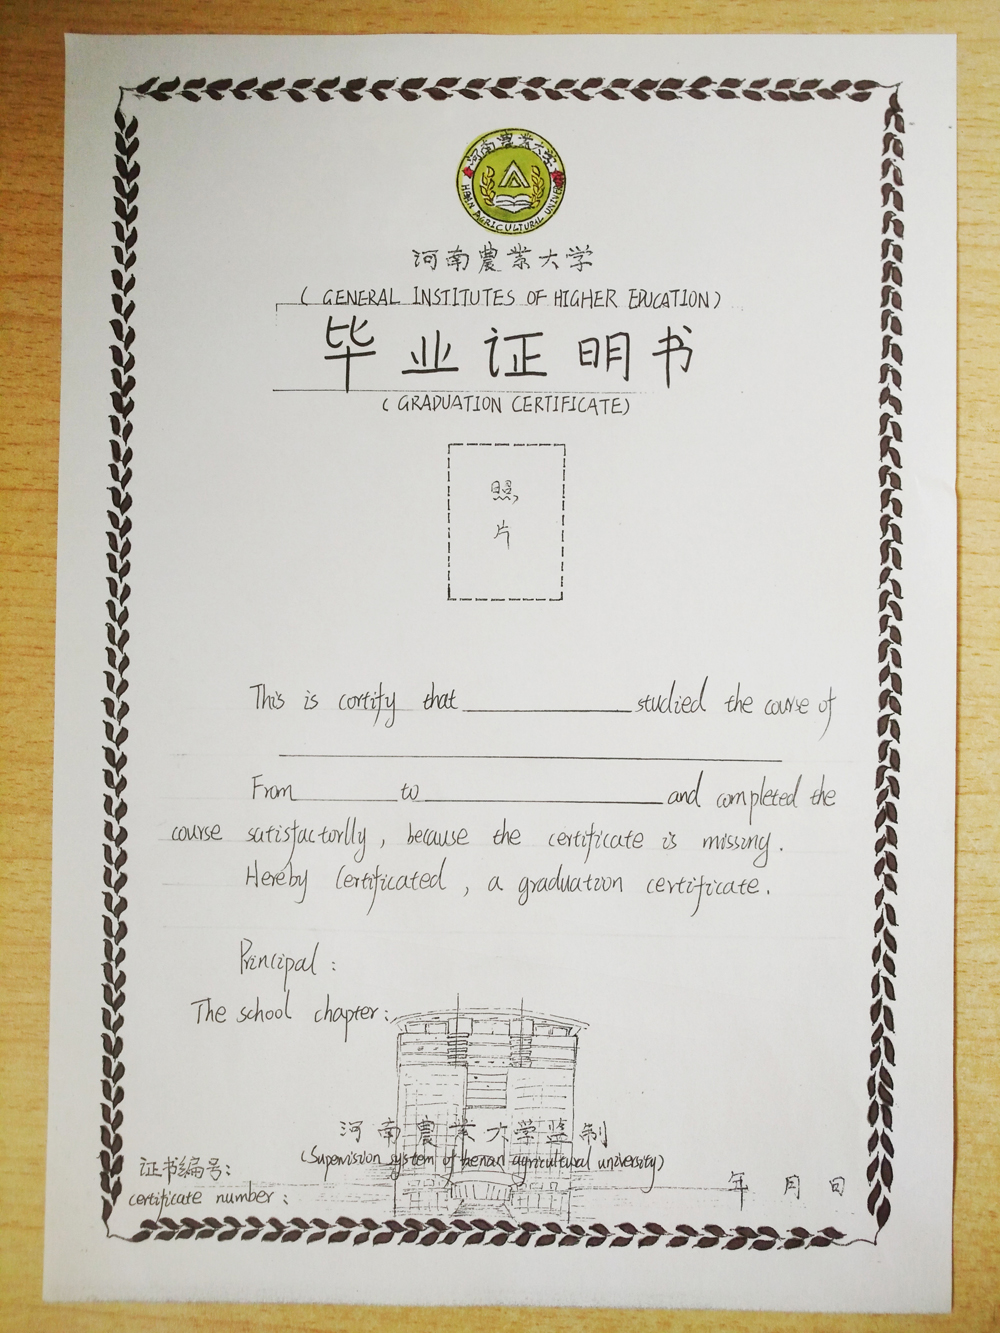 河南農業大学
HENAN AGRICULTURAL UNIVER
河南農業大学
( GENERAL INSTITUTES OF HIGHER EDUCATION)
毕业证明书
( GRADUATION CERTIFICATE)
照
片
This is cortify that studied the course of
From to and completed the
course satisfactorlly, because the certificate is missing.
Hereby Certificated, a graduation certificate.
Principal:
The school chapter:
河南農業大学监制
(Supervision system of henan agricultural university)
证书编号:
年 月 日
certificate number: